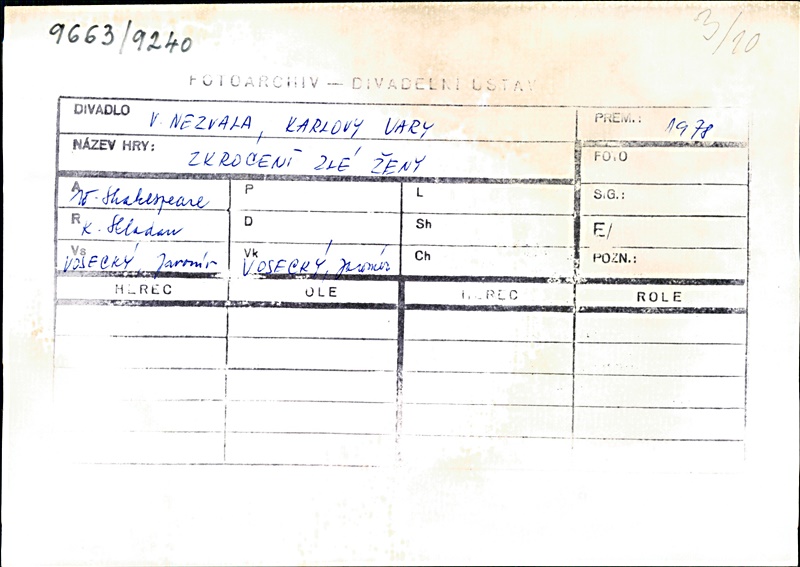 9663/9240
3/10
FOTOARCHIV — DIVADELNÍ ÚSTAV
DIVADLO V. NEZVALA, KARLOVY VARY
PREM.: 1978
NÁZEV HRY: ZKROCENÍ ZLÉ ŽENY
FOTO
A W. Shakespeare P L
S.G.:
R K. Hladan D Sh
F/
Vs VOSECKÝ Jaromír Vk VOSECKÝ, Jaromír Ch
POZN.:
HEREC OLE HEREC ROLE